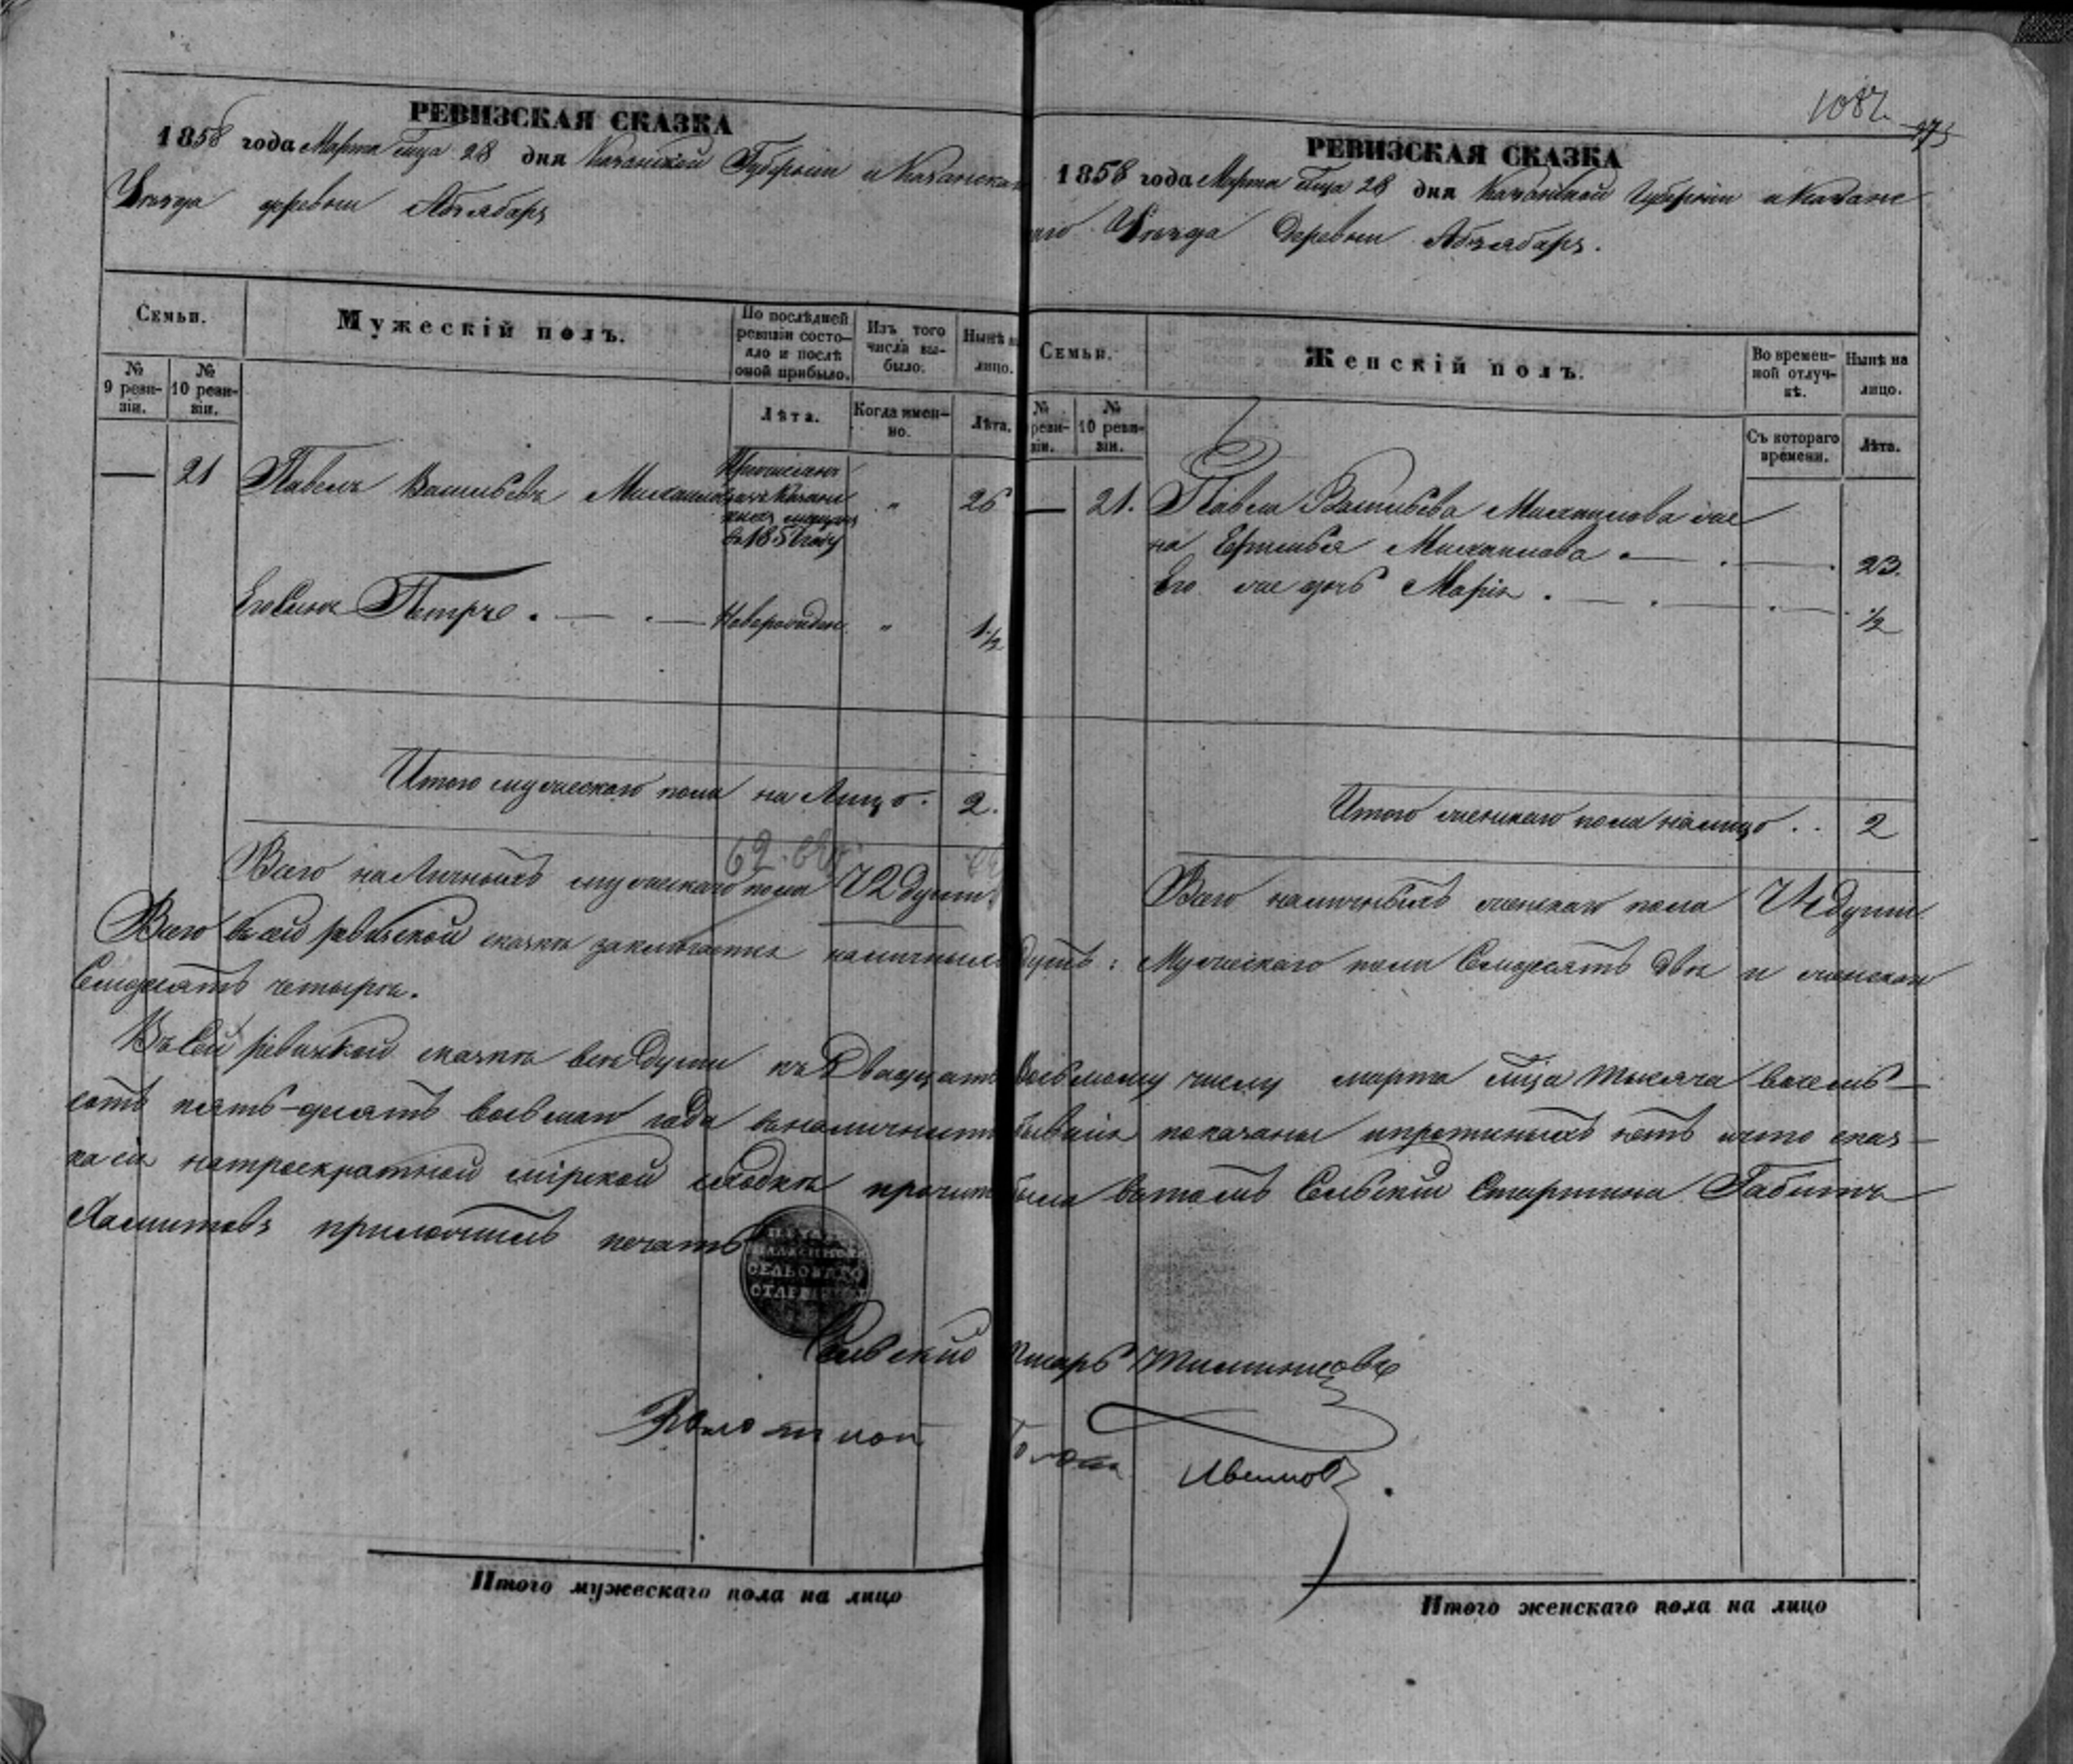 1082
973
РЕВИЗСКАЯ СКАЗКА
1858 года Марта м-ца 28 дня Казанской Губернии и Казанскаго
Уезда деревни Абзябаръ
Семьи.
Мужескій полъ.
По послѣдней ревизіи состояло и послѣ оной прибыло.
Изъ того числа выбыло.
Нынѣ на лицо.
№ 9 ревизіи.
№ 10 ревизіи.
Лѣта.
Когда именно.
Лѣта.
— 21 Павелъ Васильевъ Михайловъ
Причисленъ
изъ Казанскихъ мещанъ
въ 1851 году
" 26
Его сынъ Петръ . — . — Новорожден. " 1 1/2
Итого мужескаго пола на Лицо. 2.
62.
Всего наличныхъ мужескаго пола 72 души
РЕВИЗСКАЯ СКАЗКА
1858 года Марта м-ца 28 дня Казанской Губерніи и Казанс
каго Уезда Деревни Абзябаръ.
Семьи.
Женскій полъ.
Во временной отлучкѣ.
Нынѣ на лицо.
№ ревизіи.
№ 10 ревизіи.
Съ котораго времени.
Лѣта.
— 21. Павла Васильева Михайлова же
на Ефимья Михаилова . — . — . 23.
Его же дочь Марія . — . — . — 1/2
Итого женскаго пола налицо . . 2
Всего наличныхъ женскаго пола 74 души
Всего въ сей ревизской сказке заключается наличныхъ душъ: Мужескаго пола Семдесятъ две и женскаго
Семдесятъ четыре.
Въ Сей ревизской сказке все Души къ Двадцать Восьмому числу марта м-ца тысяча восемь-
сотъ пять-десятъ восьмаго года въ наличности бывшія показаны и прописныхъ нетъ и что сказ-
ка сія на троекратной мірской сходке прочитана была въ томъ Сельскій Старшина Габитъ
Хамитовъ приложилъ печать
ПЕЧАТЬ
СЕЛЬСКАГО
СТАРШИНЫ
Сельскій писарь
Волостной Голова Ивановъ.
Итого мужескаго пола на лицо
Итого женскаго пола на лицо